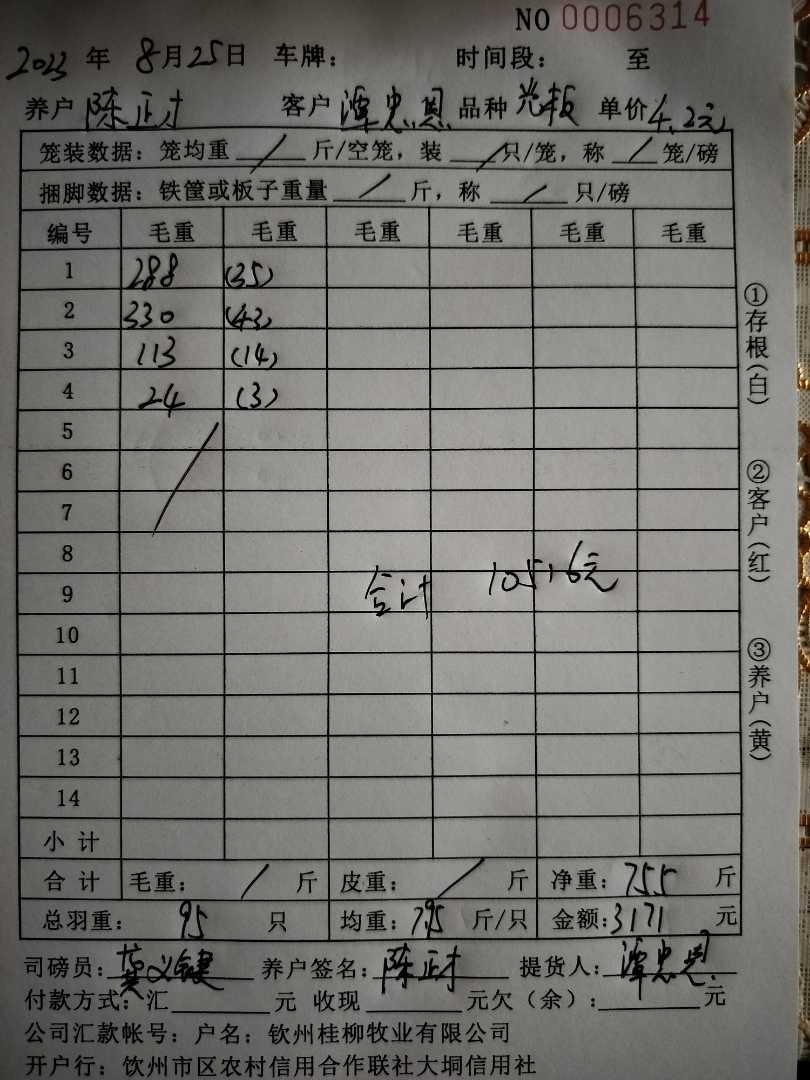 NO 0006314
2023 年 8月25日 车牌： 时间段： 至
养户 陈正才 客户 潭忠恩 品种 光板 单价 4.2元
笼装数据：笼均重 / 斤/空笼，装 / 只/笼，称 / 笼/磅
捆脚数据：铁筐或板子重量 / 斤，称 / 只/磅
编号 毛重 毛重 毛重 毛重 毛重 毛重
1 288 (35)
2 330 (43)
3 113 (14)
4 24 (3)
5
6
7
8
9 合计 10516元
10
11
12
13
14
小计
合计 毛重： / 斤 皮重： / 斤 净重：755 斤
总羽重： 95 只 均重：7.95 斤/只 金额：3171 元
司磅员： 义键 养户签名：陈正才 提货人：潭忠恩
付款方式：汇 元 收现 元欠（余）： 元
公司汇款帐号：户名：钦州桂柳牧业有限公司
开户行：钦州市区农村信用合作联社大垌信用社
①存根（白）
②客户（红）
③养户（黄）